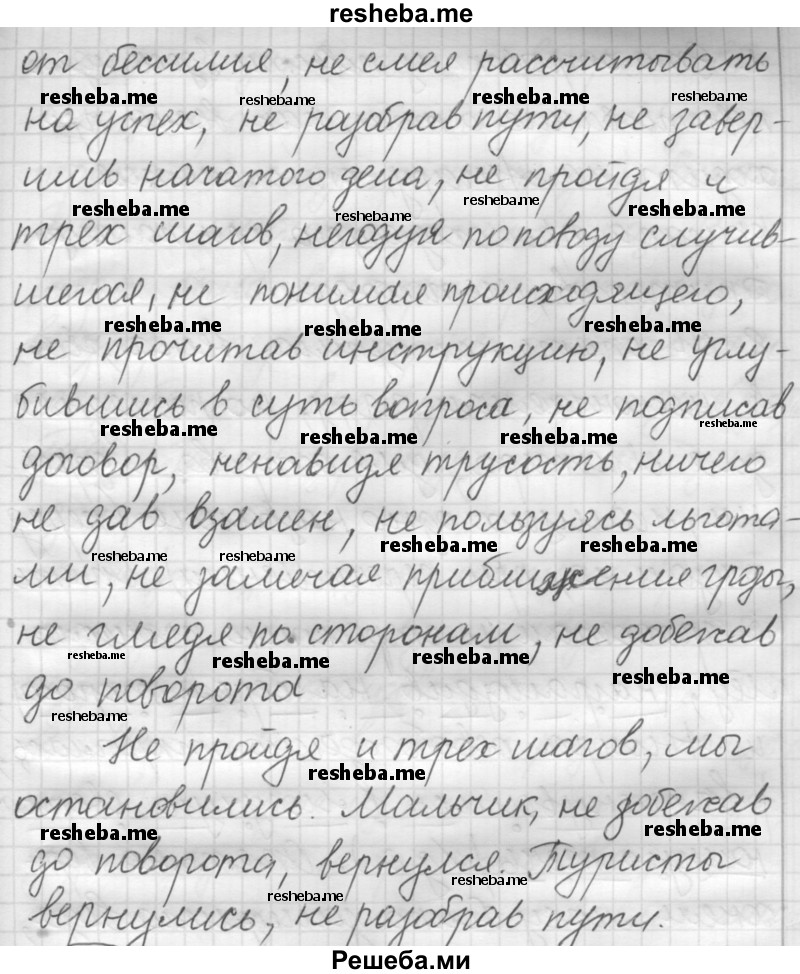 resheba.me
от бессилия, не смея рассчитывать
resheba.me resheba.me resheba.me resheba.me
на успех, не разобрав пути, не завер-
шив начатого дела, не пройдя и
resheba.me resheba.me resheba.me resheba.me
трех шагов, негодуя по поводу случив-
шегося, не понимая происходящего,
resheba.me resheba.me resheba.me
не прочитав инструкцию, не углу-
бившись в суть вопроса, не подписав
resheba.me resheba.me resheba.me resheba.me
договор, ненавидя трусость, ничего
не дав взамен, не пользуясь льгота-
resheba.me resheba.me resheba.me resheba.me
ми, не замечая приближения грозы,
не глядя по сторонам, не добежав
resheba.me resheba.me resheba.me resheba.me
до поворота
resheba.me
Не пройдя и трех шагов, мы
resheba.me
остановились. Мальчик, не добежав
resheba.me resheba.me
до поворота, вернулся. Туристы
resheba.me resheba.me
вернулись, не разобрав пути.
Решеба.ми